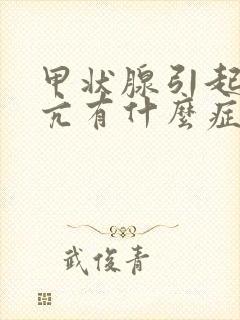 甲状腺引起
亢有什麼症
武俊青